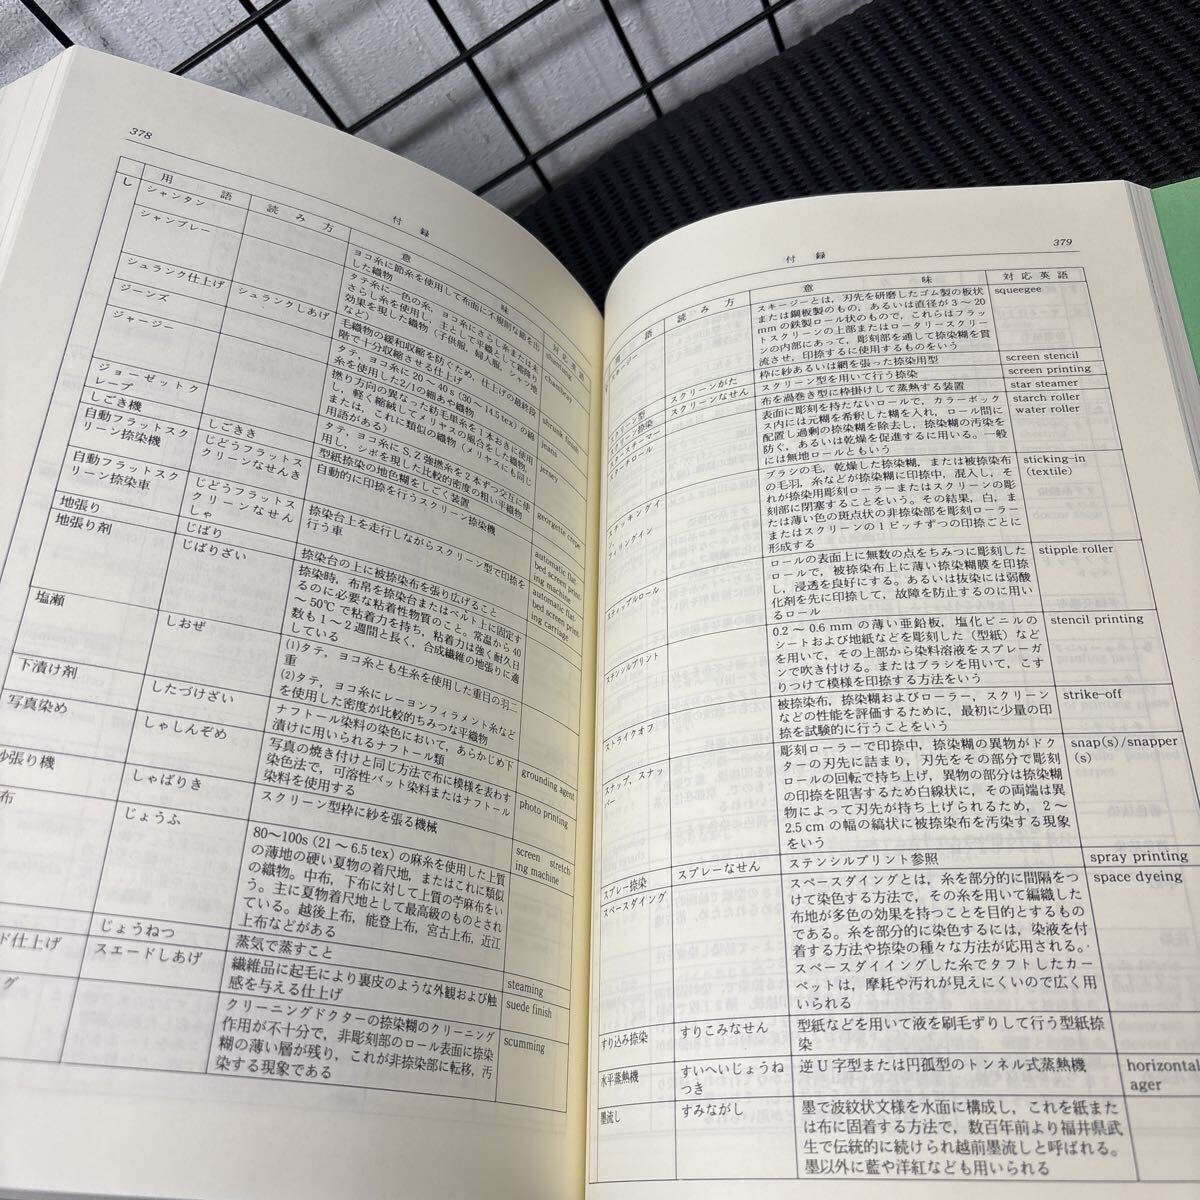 378
付 録
用 語
読 み 方
意 味
対 応 英 語
し
シャンタン
ヨコ糸に節糸を使用して布面に不規則な節を出
した織物
shantung
シャンブレー
タテ糸に一色の糸，ヨコ糸にさらし糸または未
さらし糸を使用し，主として平織として霜降り
効果を現した織物（子供服，婦人服，シャツ地
など）
chambray
シュランク仕上げ
シュランクしあげ
毛織物の緩和収縮を防ぐため，仕上げの最終段
階で十分収縮させる仕上げ
shrunk finish
ジーンズ
タテ，ヨコ糸に 20～40s（30～14.5 tex）の綿
糸を使用した 2/1 の細あや織物
jeans
ジャージー
撚り方向の異なった紡毛単糸を1本おきに使用
し，軽く縮絨してメリヤスの風合をした織物，
または，これに類似の織物（メリヤスにも同じ
用語がある）
jersey
ジョーゼットク
レープ
タテ，ヨコ糸に S, Z 強撚糸を2本ずつ交互に使
用し，シボを現した比較的密度の粗い平織物
georgette crepe
しごき機
しごきき
型紙捺染の地色糊をしごく装置
自動フラットスク
リーン捺染機
じどうフラットス
クリーンなせんき
自動的に印捺を行うスクリーン捺染機
automatic flat-
bed screen print-
ing machine
自動フラットスク
リーン捺染車
じどうフラットス
クリーンなせん
しゃ
捺染台上を走行しながらスクリーン型で印捺を
行う車
automatic flat-
bed screen print-
ing carriage
地張り
じばり
捺染台の上に被捺染布を張り広げること
地張り剤
じばりざい
捺染時，布帛を捺染台またはベルト上に固定す
るのに必要な粘着性物質のこと。常温から 40
～50℃で粘着力を持ち，粘着力は強く耐久日
数も1～2週間と長く，合成繊維の地張りに適
している
塩瀬
しおぜ
(1)タテ，ヨコ糸とも生糸を使用した重目の羽二
重
(2)タテ，ヨコ糸にレーヨンフィラメント糸など
を使用した密度が比較的ちみつな平織物
下漬け剤
したづけざい
ナフトール染料の染色において，あらかじめ下
漬けに用いられるナフトール類
grounding agent
写真染め
しゃしんぞめ
写真の焼き付けと同じ方法で布に模様を表わす
染色法で，可溶性バット染料またはナフトール
染料を使用する
photo printing
紗張り機
しゃばりき
スクリーン型枠に紗を張る機械
screen stretch-
ing machine
布
じょうふ
80～100s（21～6.5 tex）の麻糸を使用した上質
の薄地の硬い夏物の着尺地，またはこれに類似
の織物。中布，下布に対して上質の苧麻布をい
う。主に夏物着尺地として最高級のものとされ
ている。越後上布，能登上布，宮古上布，近江
上布などがある
じょうねつ
蒸気で蒸すこと
steaming
ド仕上げ
スエードしあげ
繊維品に起毛により裏皮のような外観および触
感を与える仕上げ
suede finish
グ
クリーニングドクターの捺染糊のクリーニング
作用が不十分で，非彫刻部のロール表面に捺染
糊の薄い層が残り，これが非捺染部に転移，汚
染する現象である
scumming
付 録
379
用 語
読 み 方
意 味
対 応 英 語
スキージーとは，刃先を研磨したゴム製の板状
または鋼板製のもの，あるいは直径が 3～20
mm の鉄製ロール状のもので，これらはフラッ
トスクリーンの上部またはロータリースクリー
ンの内部にあって，彫刻部を通して捺染糊を質
流させ，印捺するに使用するものをいう
squeegee
スクリーンがた
枠に紗あるいは網を張った捺染用型
screen stencil
スクリーンなせん
スクリーン型を用いて行う捺染
screen printing
布を渦巻き型に枠掛けして蒸熱する装置
star steamer
スターチロール
表面に彫刻を持たないロールで，カラーボック
ス内には元糊を希釈した糊を入れ，ロール間に
配置し過剰の捺染糊を除去し，捺染糊の汚染を
防ぐ，あるいは乾燥を促進するに用いる。一般
には無地ロールともいう
starch roller
water roller
ブラシの毛，乾燥した捺染糊，または被捺染布
の毛羽，糸などが捺染糊に印捺中，混入し，そ
れが捺染用彫刻ローラーまたはスクリーンの彫
刻部に閉塞することをいう。その結果，白，ま
たは薄い色の斑点状の非捺染部を彫刻ローラー
またはスクリーンの1ピッチずつの印捺ごとに
形成する
sticking-in
(textile)
スティップルロール
ロールの表面上に無数の点をちみつに彫刻した
ロールで，被捺染布上に薄い捺染糊膜を印捺
し，浸透を良好にする。あるいは抜染には弱酸
化剤を先に印捺して，故障を防止するのに用い
るロール
stipple roller
ステンシルプリント
0.2～0.6 mm の薄い亜鉛板，塩化ビニルの
シートおよび地紙などを彫刻した（型紙）など
を用いて，その上部から染料溶液をスプレーガ
ンで吹き付ける。またはブラシを用いて，こす
りつけて模様を印捺する方法をいう
stencil printing
ストライクオフ
被捺染布，捺染糊およびローラー，スクリーン
などの性能を評価するために，最初に少量の印
捺を試験的に行うことをいう
strike-off
スナップ，スナッ
パー
彫刻ローラーで印捺中，捺染糊の異物がドク
ターの刃先に詰まり，刃先をその部分で彫刻
ロールの回転で持ち上げ，異物の部分は捺染糊
の印捺を阻害するため白線状に，その両端は異
物によって刃先が持ち上げられるため，2～
2.5 cm の幅の縞状に被捺染布を汚染する現象
をいう
snap(s)/snapper
(s)
スプレー捺染
スプレーなせん
ステンシルプリント参照
spray printing
スペースダイング
スペースダイングとは，糸を部分的に間隔をつ
けて染色する方法で，その糸を用いて編織した
布地が多色の効果を持つことを目的とするもの
である。糸を部分的に染色するには，染液を付
着する方法や捺染の種々な方法が応用される。
スペースダイイングした糸でタフトしたカー
ペットは，摩耗や汚れが見えにくいので広く用
いられる
space dyeing
すり込み捺染
すりこみなせん
型紙などを用いて液を刷毛ずりして行う型紙捺
染
水平蒸熱機
すいへいじょうね
つき
逆U字型または円弧型のトンネル式蒸熱機
horizontal
ager
墨流し
すみながし
墨で波紋状文様を水面に構成し，これを紙また
は布に固着する方法で，数百年前より福井県武
生で伝統的に続けられ越前墨流しと呼ばれる。
墨以外に藍や洋紅なども用いられる